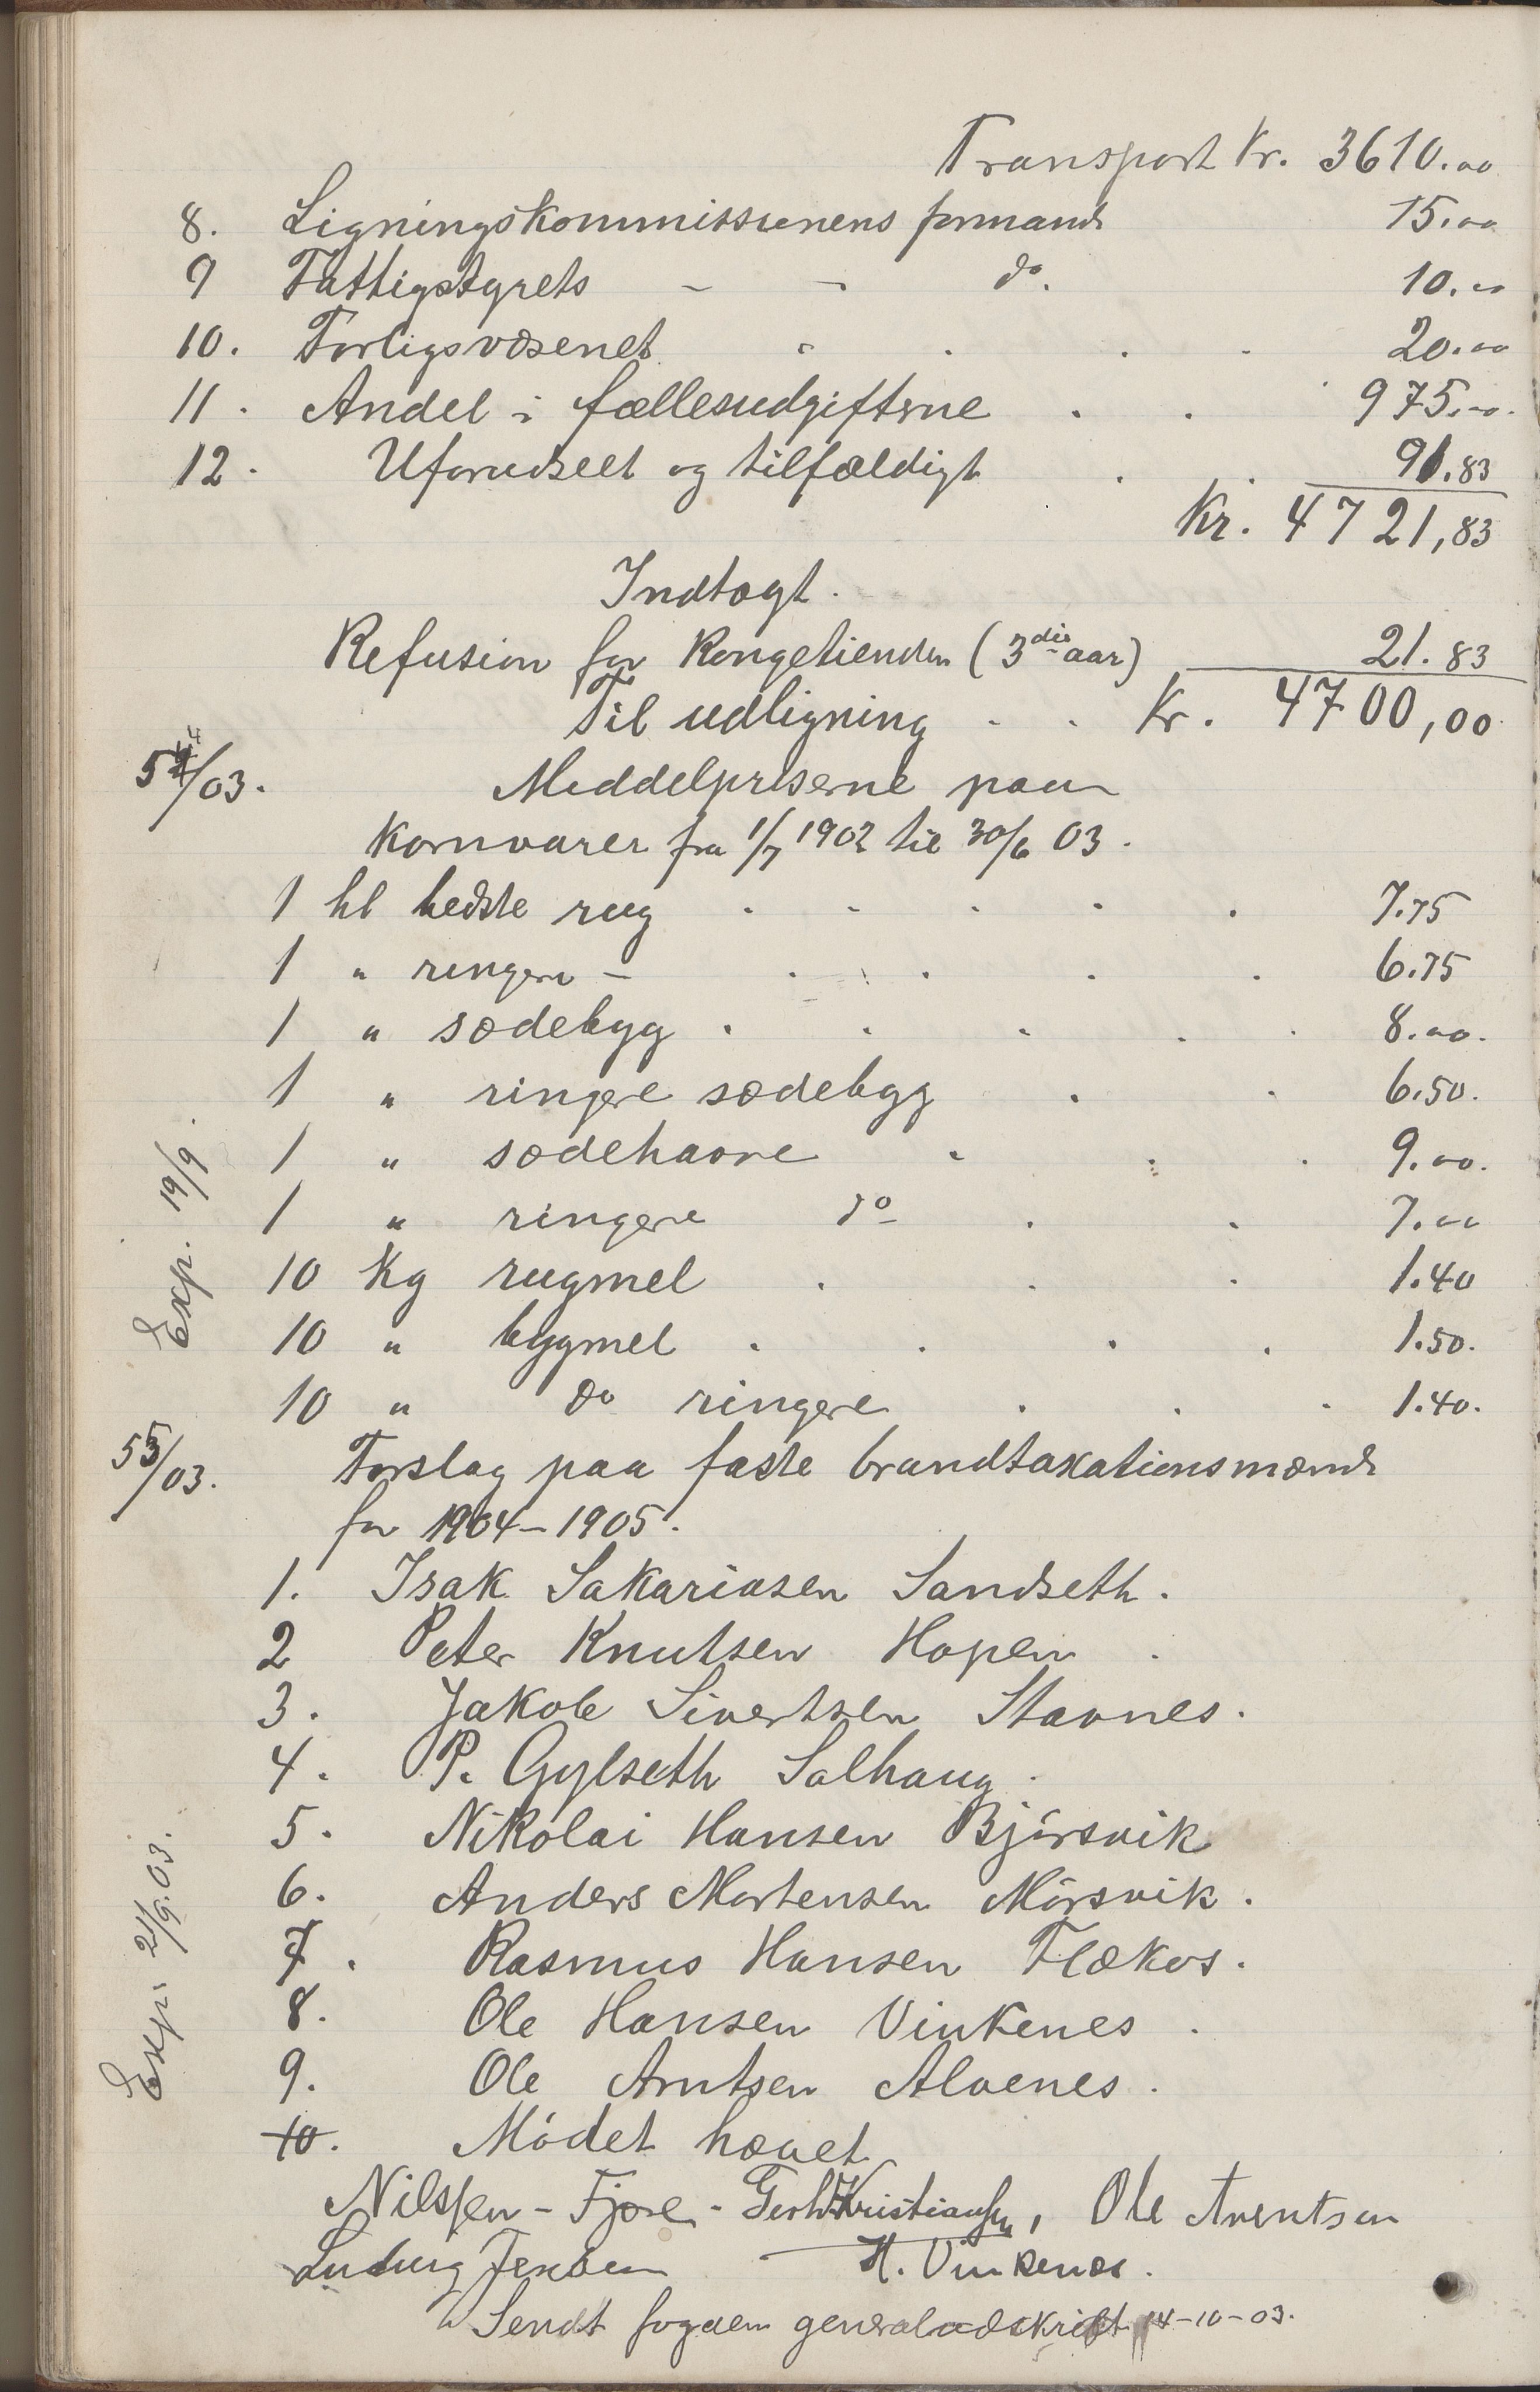 Transport Kr. 3610.00
8. Ligningskommissionens formand 15.00
9 Fattigstyrets - - do. 10.00
10. Forligsvæsenet 20.00
11. Andel i fællesudgifterne 975.00.
12. Uforudseet og tilfældigt 91.83
Kr. 4721,83
Indtægt.
Refusion for Kongetienden (3die aar) 21.83
Til udligning Kr. 4700,00
54/03. Middelpriserne paa
kornvarer fra 1/7 1902 til 30/6 03.
1 hl bedste rug 7.75
1 " ringere - 6.75
1 " sædebyg 8.00.
1 " ringere sædebyg 6.50.
1 " sædehavre 9.00.
1 " ringere do 7.00
10 Kg rugmel 1.40
10 " bygmel 1.50.
10 " do ringere 1.40.
Exp. 19/9.
55/03. Forslag paa faste brandtaxationsmænd
for 1904-1905.
1. Isak Sakariasen Sandseth.
2 Peter Knutsen Hopen.
3. Jakob Sivertsen Stavnes.
4. P. Gylseth Solhaug.
5. Nikolai Hansen Bjørsvik
6. Anders Mortensen Mørsvik.
7. Rasmus Hansen Flækos.
8. Ole Hansen Vinkenes.
9. Ole Arntsen Alvenes.
10. Mødet hævet
Exp. 21/9.03.
Nilssen - Fjære - Gerh Kristiansen, Ole Arentsen
Ludvig Jensen H. Vinkenes.
Sendt fogden generaludskrift 14-10-03.